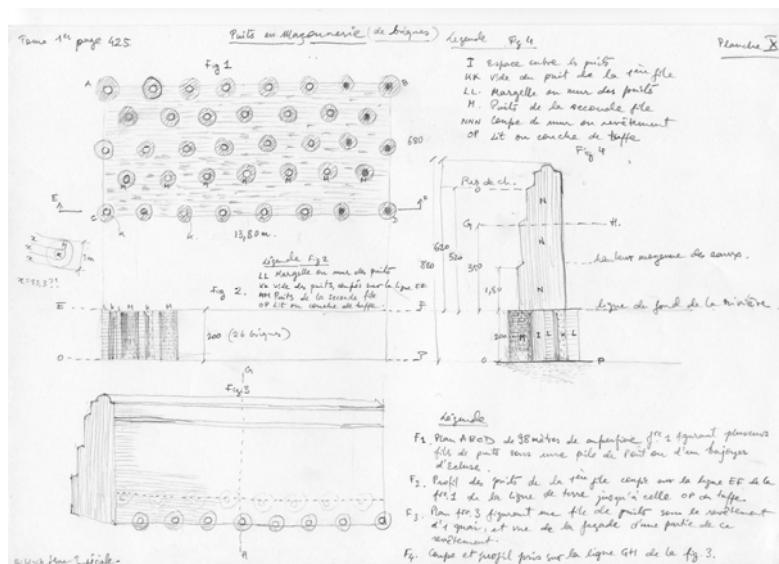 Tome 1er page 425
Puits en Maçonnerie (de briques)
Planche X
Fig 1
A
B
680
M M M M M M M
E
F
C
D
13,80 m.
x
x
1m
Légende Fig 4
I Espace entre les puits
KK Vide du puit de la 1ère file
LL. Margelle ou mur des puits
M. Puits de la seconde file
NNN Coupe du mur ou revêtement
OP Lit ou couche de tuffe
Fig 4
Rez de ch.
G
H.
N
N
N
620
520
350
1,80
hauteur moyenne des eaux
ligne du fond de la rivière
200
M I L K L
O
P
Légende Fig 2
LL Margelle ou mur des puits
KK Vide des puits, coupés sur la ligne EF
MM Puits de la seconde file
OP Lit ou couche de tuffe.
Fig 2.
E
F
L K L M K M
200 (26 briques)
O
P
G
Fig. 3
Légende
F1. Plan ABCD de 98 mètres de superficie fre. 1 figurant plusieurs
fils de puits sous une pile de Pont ou d'un bajoyer
d'écluse.
F2. Profil des puits de la 1ère file coupé sur la ligne EF de la
fre. 1 de la ligne de terre jusqu'à celle OP du tuffe.
F3. Plan fre. 3 figurant une file de puits sous le revêtement
d'1 quai, et vue de la façade d'une partie de ce
revêtement.
F4. Coupe et profil pris sur la ligne GH de la fig. 3.